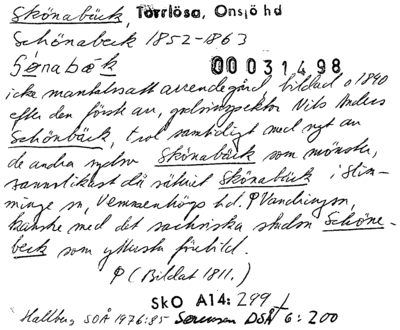 Skönabäck, Torrlösa, Onsjö hd
Schönabeck 1852-1863
Sønabæk 00031498
icke mantalssatt arrendegård, bildad o 1840
efter den förste arr, godsinspektor Nils Anders
Schönbäck, trol samtidigt med ngt av
de andra Skönabäck som mönster,
sannolikast då säkert Skönabäck i Slim-
minge sn, Vemmenhögs hd. φ Vandringsn,
kanske med det sachsiska staden Schöne-
beck som yttersta förebild.
φ (Bildat 1811.)
SkO A14: 299
Hallberg SOÅ 1976:85 Sørensen DSÅ 6: 200